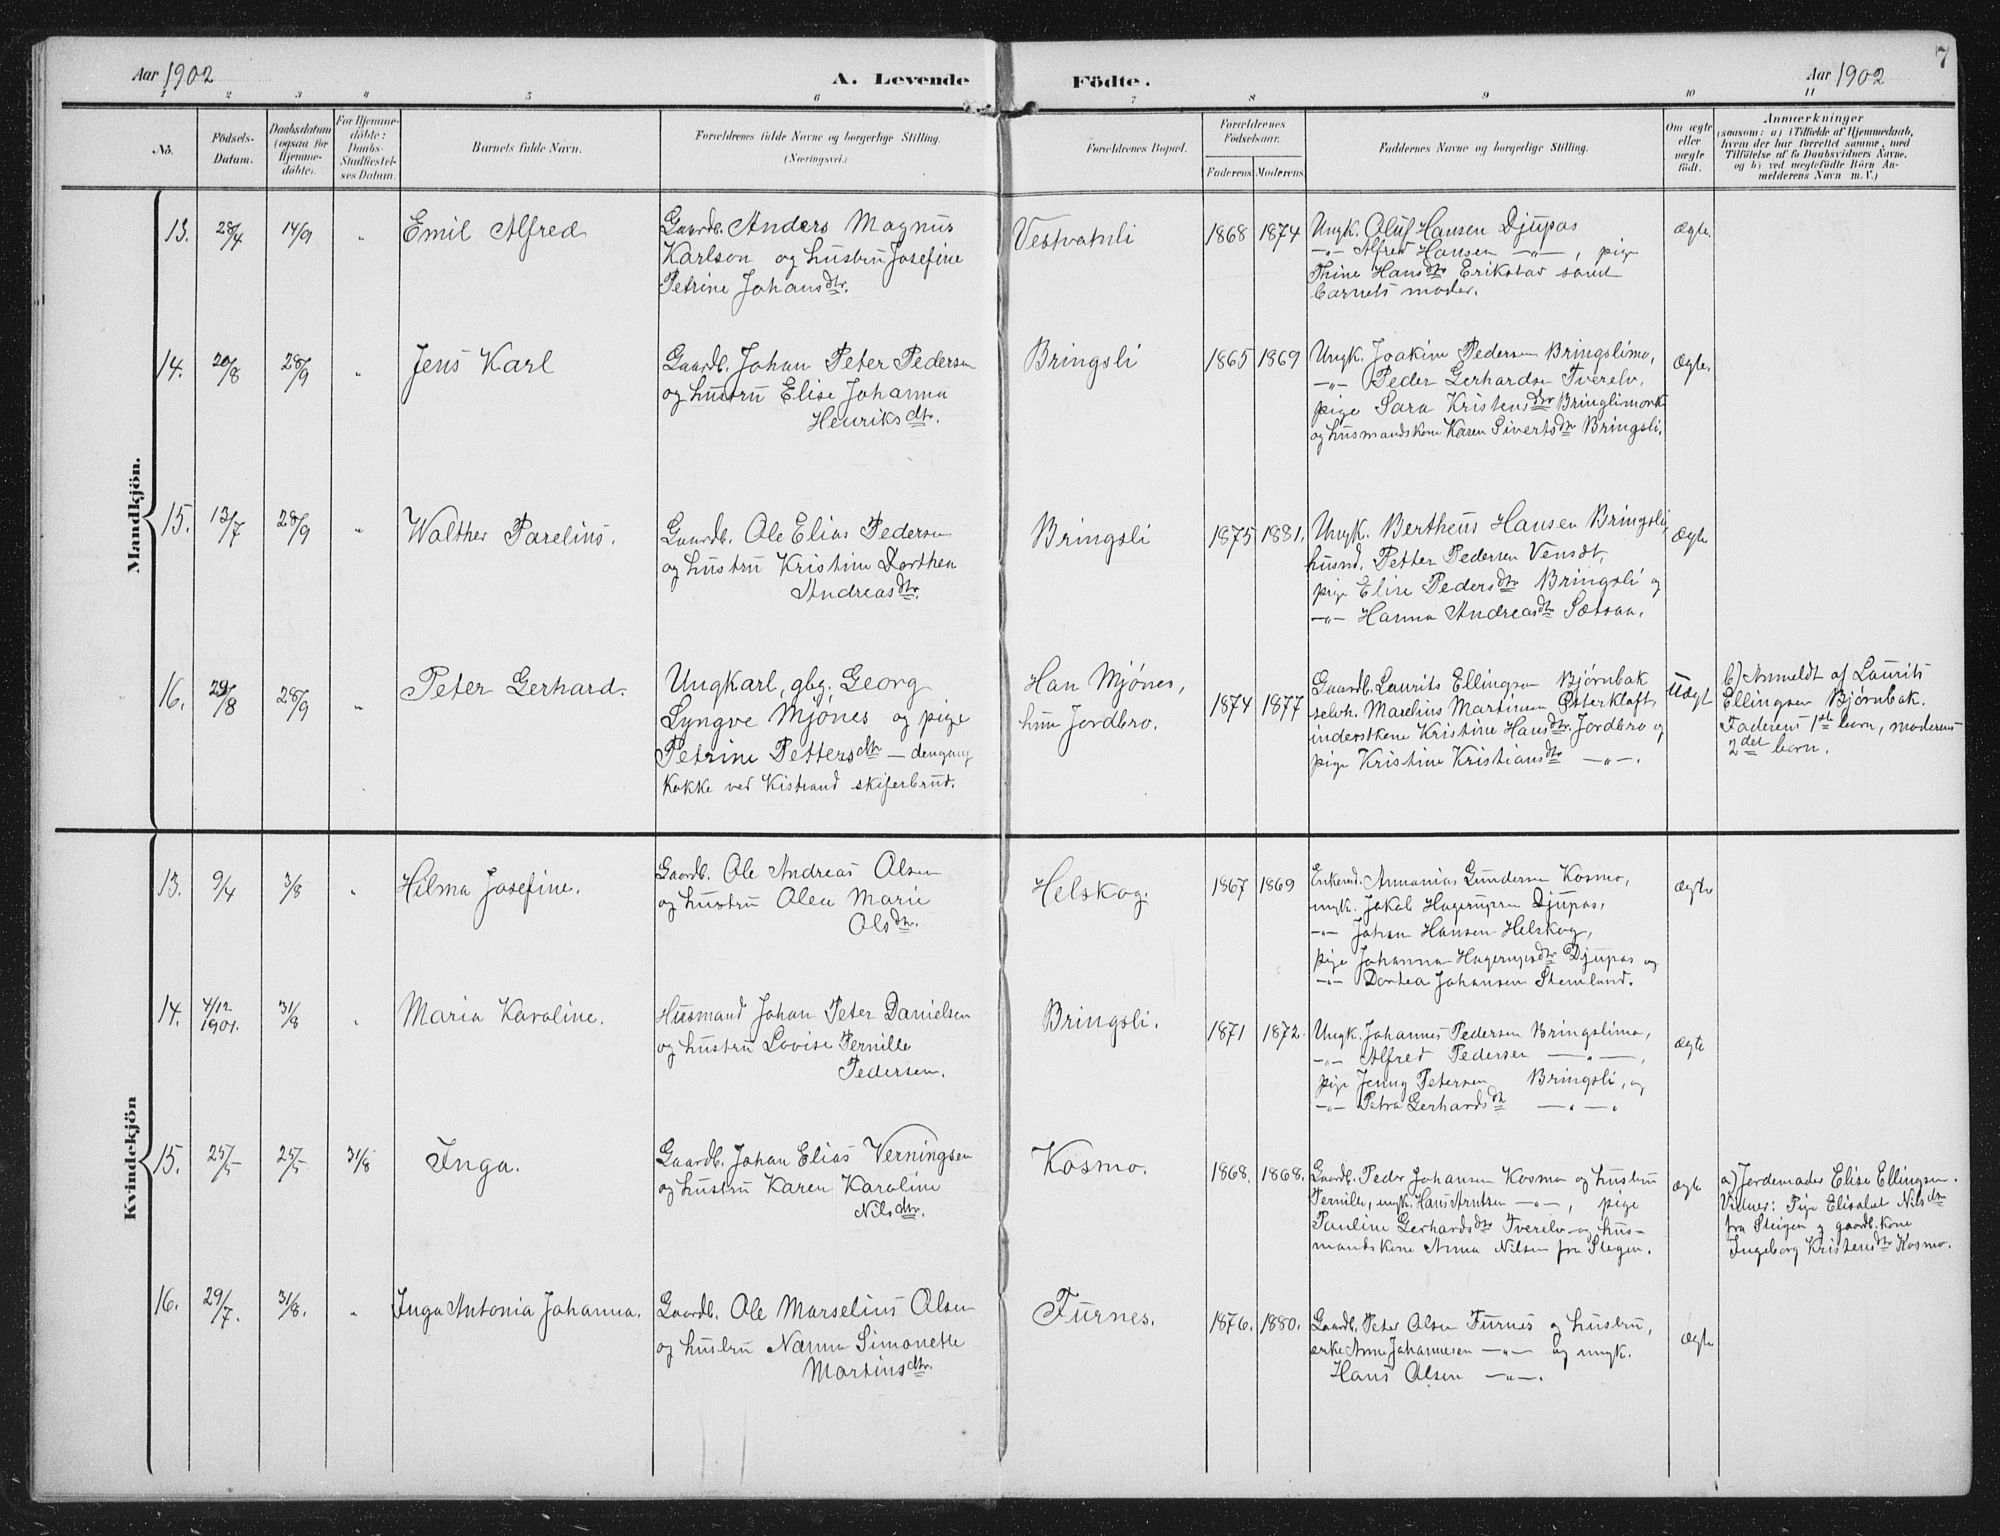 Aar 1902
A. Levende Födte.
Aar 1902
7
1 2 3 4 5 6 7 8 9 10 11
No.
Födsels-
Datum.
Daabsdatum
(ogsaa for
Hjemme-
döbte).
For Hjemme-
döbte:
Daabs-
Stadfæstel-
ses Datum.
Barnets fulde Navn.
Forældrenes fulde Navne og borgerlige Stilling.
(Næringsvei.)
Forældrenes Bopæl.
Forældrenes
Födselsaar.
Faderens Moderens
Faddernes Navne og borgerlige Stilling.
Om ægte
eller
uægte
födt.
Anmærkninger
(saasom: a) i Tilfælde af Hjemmedaab,
hvem der har forrettet samme, med
Tilföielse af to Daabsvidners Navne,
og b) ved uægtefödte Börn An-
melderens Navn m. V.)
Mandkjön.
13. 28/4 14/9 " Emil Alfred
Gaardb. Anders Magnus
Karlson og hustru Josefine
Petrine Johansdtr.
Vestvatnli
1868 1874
Ungk. Oluf Hansen Djupas
-"- Alfred Hansen -"-, pige
Thine Hansdtr Erikstad samt
barnets moder.
Ægte.
14. 20/8 28/9 " Jens Karl
Gaardb. Johan Peter Pedersen
og hustru Elise Johanna
Henriksdtr.
Bringsli
1865 1869
Ungk. Joakim Pedersen Bringslimo,
-"- Peder Gerhardsen Tverelv,
pige Sara Kristensdtr Bringslimark
og husmandskone Karen Sivertsdtr Bringsli.
Ægte.
15. 13/7 28/9 " Walther Parelius.
Gaardb. Ole Elias Pedersen
og hustru Kristine Dorthea
Andreasdtr.
Bringsli
1875 1881.
Ungk. Bertheus Hansen Bringsli,
husmd. Petter Pedersen Vensdt,
pige Elise Pedersdtr Bringsli og
-"- Hanna Andreasdtr Sætsaa.
Ægte
16. 29/8 28/9 " Peter Gerhard.
Ungkarl, gbg. Georg
Lyngve Mjönes og pige
Petrine Pettersdtr - dengang
kokke ved Kistrand skiferbrud.
Han Mjönes,
hun Jordbro.
1874 1877
Gaardb. Laurits Ellingsen Björnbak
selvh. Maselius Martinsen Österkloft,
inderstkone Kristine Hansdtr. Jordbro og
pige Kristine Kristiansdtr -"-.
Uægt
b) Anmeldt af Laurits
Ellingsen Björnbak.
Faderens 1ste barn, moderens
2det barn.
Kvindekjön
13. 9/4 3/8 " Hilma Josefine.
Gaardb. Ole Andreas Olsen
og hustru Olea Marie
Olsdtr.
Helskog
1867 1869
Enkemd. Annanias Gundersen Kosmo,
ungk. Jakob Hagerupsen Djupas,
-"- Johan Hansen Helskog,
pige Johanna Hagerupsdtr Djupas og
-"- Dortea Johansen Stemland.
Ægte
14. 4/12
1901. 31/8 " Maria Karoline.
Husmand Johan Peter Danielsen
og hustru Lovise Pernille
Pedersen.
Bringsli.
1871 1872.
Ungk. Johannes Pedersen Bringslimo,
-"- Alfred Pedersen -"-,
pige Jenny Petersen Bringsli, og
-"- Petra Gerhardsdtr -"-
Ægte
15. 25/5 25/5 31/8 Inga.
Gaardb. Johan Elias Verningsen
og hustru Karen Karoline
Nilsdtr.
Kosmo.
1868. 1868.
Gaardb. Peder Johansen Kosmo og hustru
Pernille, ungk. Hans Arntsen -"-, pige
Pauline Gerhardsdtr Tverelv og hus-
mandskone Anna Nilsen fra Stegen.
Ægt
a) Jordemoder Elise Ellingsen.
Vidner: Pige Elisabet Nilsdtr
fra Steigen og gaardb. kone
Ingeborg Kristensdtr Kosmo.
16. 29/7. 31/8. " Inga Antonia Johanna.
Gaardb. Ole Marselius Olsen
og hustru Nanna Simonette
Martinsdtr.
Furnes.
1876. 1880.
Gaardb. Peter Olsen Furnes og hustru,
enke Anne Johannesen -"- og ungk.
Hans Olsen -"-.
Ægte